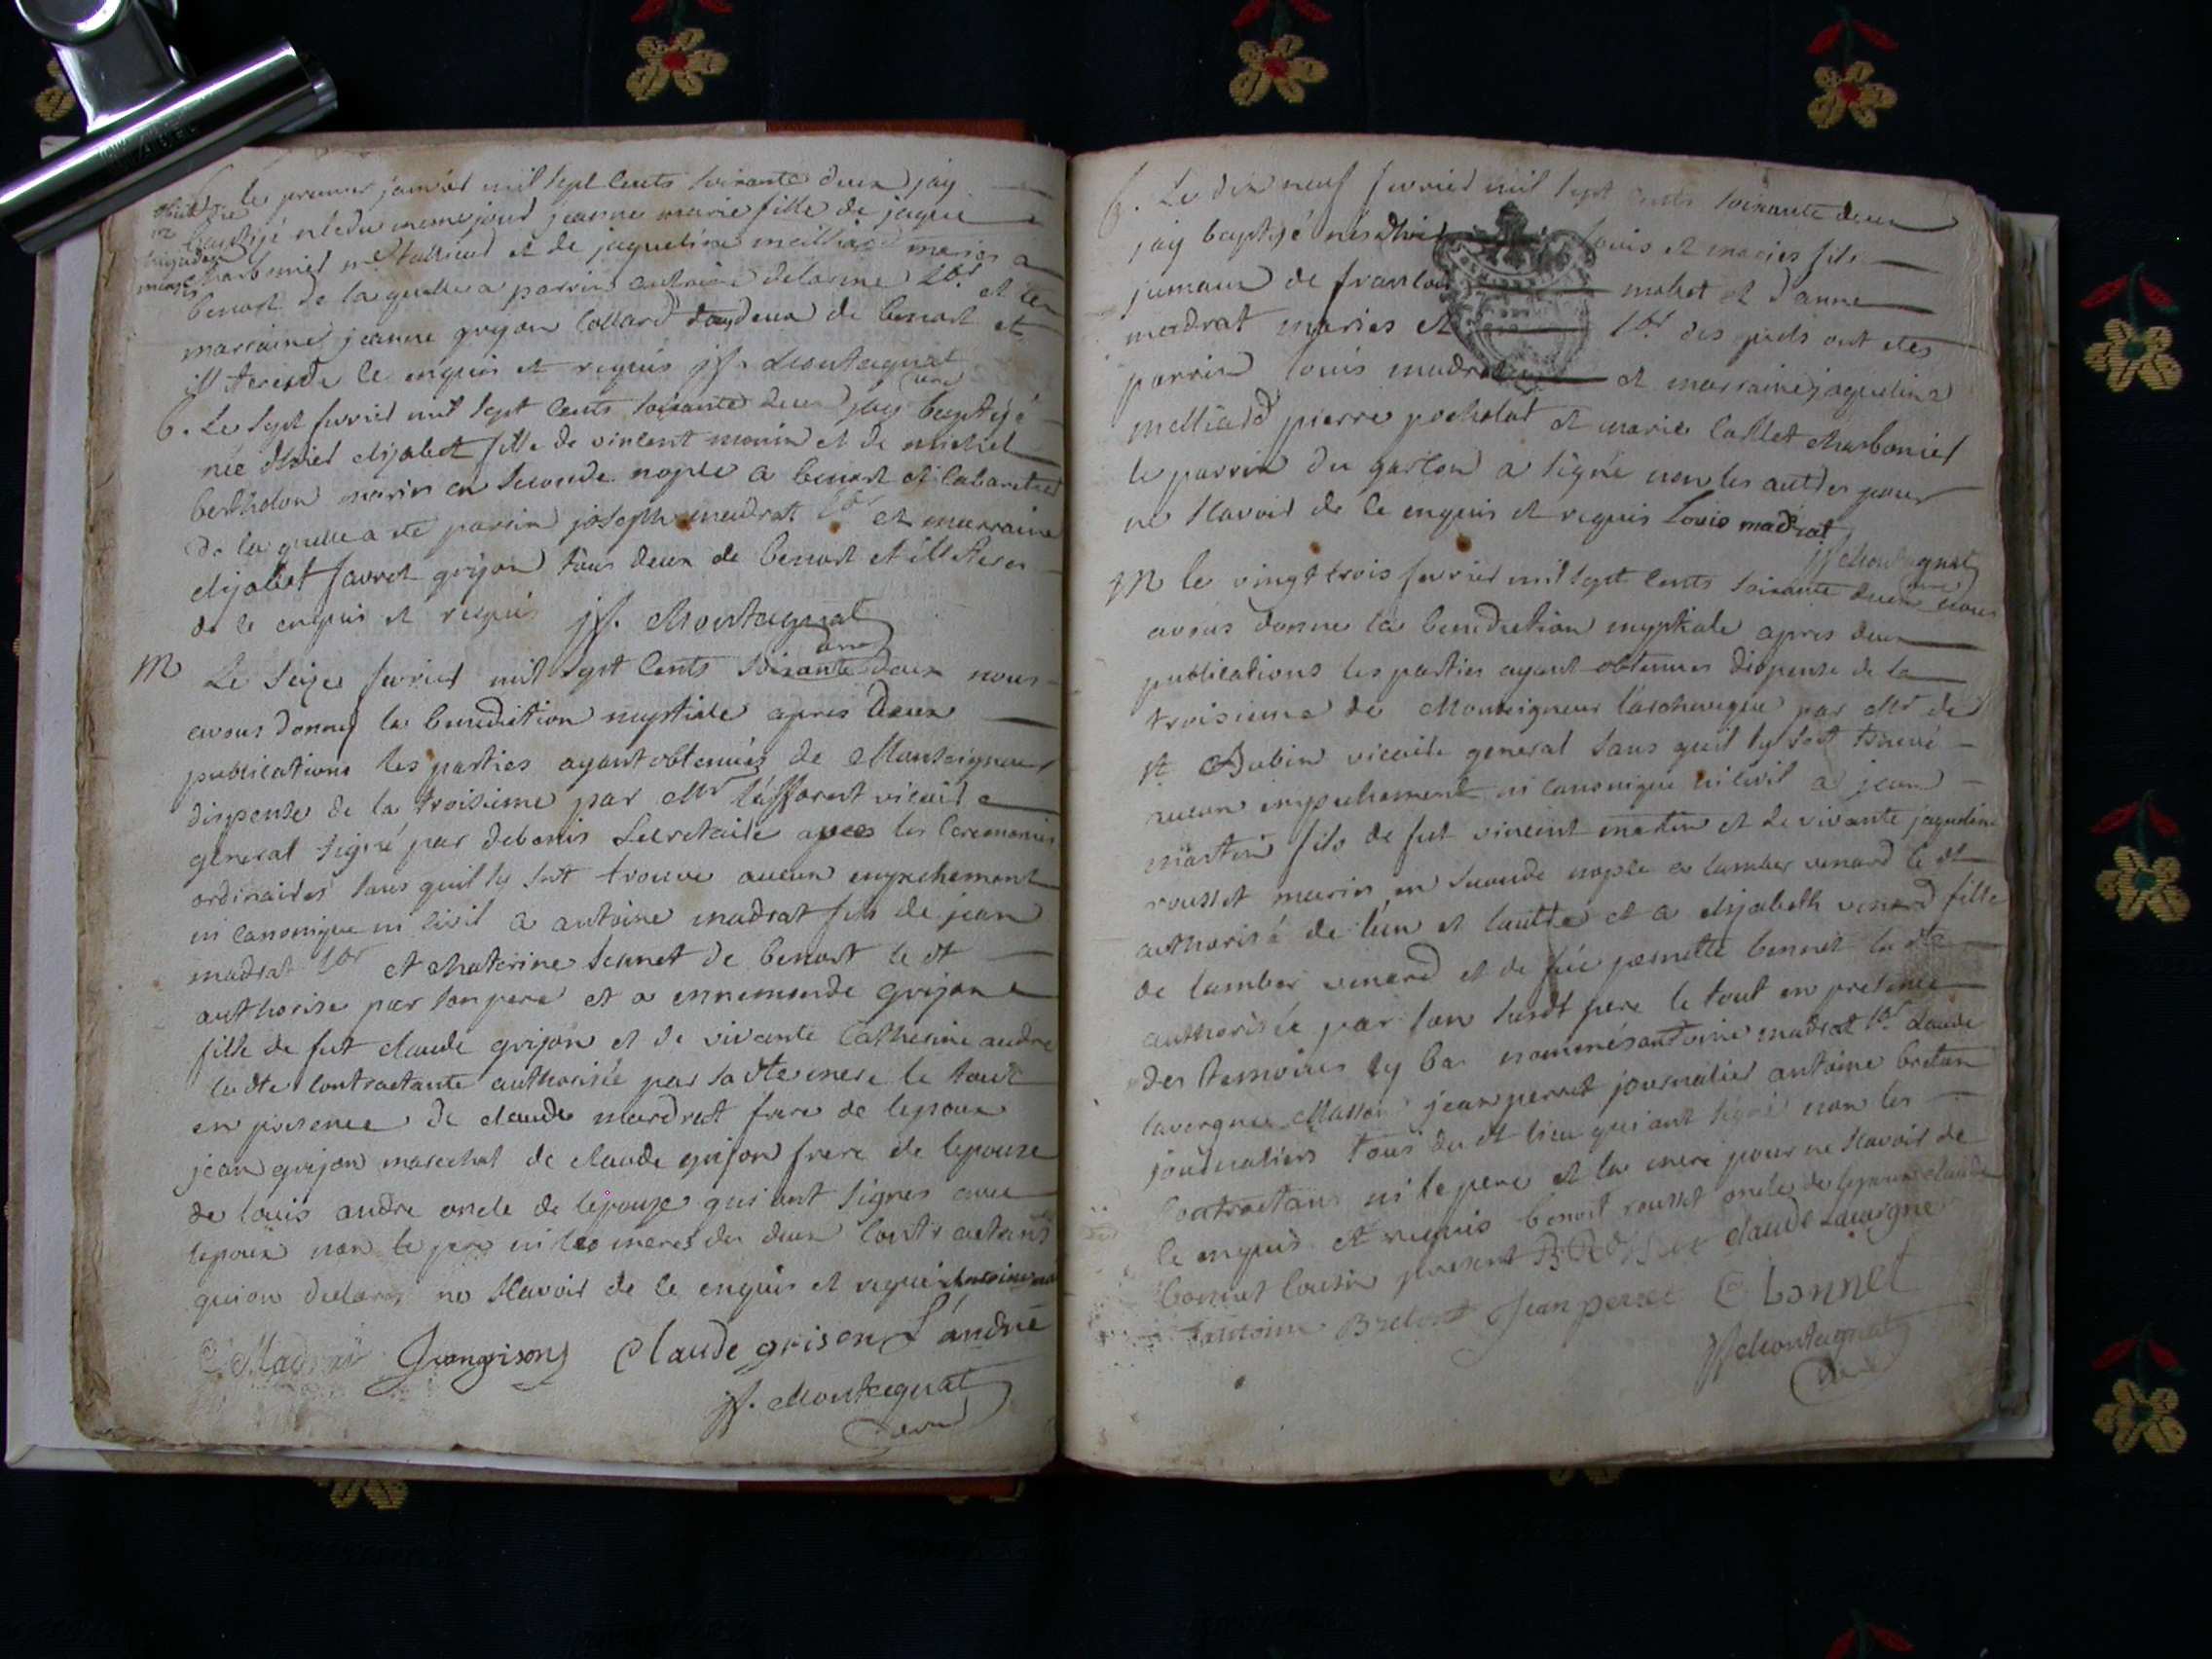 le premier janvier mil sept cents soixante deux jay
baptisé née du meme jour jeanne marie fille de jaque
charbonier me tallieur et de jaqueline melliard maries a
benost de laquelle a parrin antoine delorme lbr et la
marraine jeanne grijon collard tous deux de benost et
illiterés de ce enquis et requis jf. Montagnat
curé
b. Le sept fevrier mil sept cents soixante deux jay baptisé
née dhier elizabet fille de vincent monin et de michel
berthdon mariés en seconde nople a benost et cabaretier
de laquelle a été parrin joseph madrat lbr et marraine
elizabet favret grijon tous deux de benost et illiterés
de ce enquis et requis jf. Montagnat
curé
M Le seize fevrier mil sept cents soixante deux nous
avons donné la benediction nuptiale apres deux
publications les parties ayant obtenués de Monseigneur
dispense de la troisieme par Mr lafforest vicaire
general signé par debonis secretaire avec les ceremonies
ordinaires sans quil sy soit trouvé aucun empechement
ni canonique ni civil a antoine madrat fils de jean
madrat lbr et chaterine jeunet de benost le dt
authorise par son pere et a ennemonde grijon
fille de fut claude grijon et de vivante Catherine andre
la dte contractante authorisée par sa dte mere le tout
en presence de claude mardrat frere de lepoux
jean grijon marechal de claude grijon frere de lepouze
de louis andre oncle de lepouze qui ont signés avec
lepoux non le pere ni les meres des deux contractans
qui on declaré ne scavoir de ce enquis et requis
C. Madrat Jean grisons Claude grison L'andré
jf. Montagnat
curé
b. Le dix neuf fevrier mil sept cents soixante deux
jay baptisé nés dhier louis et maries fils
jumaux de francois molret et d'anne
madrat mariés et lbr des quels ont etes
parrin louis madrat et marraine jaqueline
melliard pierre pochelat et marie Callet charbonier
le parrin du garcon a signé non les autres pour
ne scavoir de ce enquis et requis Louis madrat
jf Montagnat
curé
M le vingt trois fevrier mil sept cents soixante deux nous
avons donne la benediction nuptiale apres deux
publications les parties ayant obtenues dispense de la
troisieme de Monseigneur larcheveque par Mr de
st Aubin vicaire general sans quil sy soit trouvé
aucun empechement ni canonique ni civil a jean
martin fils de fut vincent martin et de vivante jaqueline
rousset mariés en seconde nople a lamber venard le dt
authorisé de lun et lautre et a elizabeth venard fille
de lamber venard et de fue pernette bonnet la dte
authorisée par son susdt pere le tout en presence
des temoins cy bas nommés antoine madrat lbr claude
lavergne Masson jean perret journalier antoine breton
journaliers tous du dt lieu qui ont signé non les
contractans ni le pere et la mere pour ne scavoir de
ce enquis et requis benost rousset oncle de lepoux claude
bonnet cousin present claude Lavergne
antoine Breton Jean perret C bonnet
jf Montagnat
curé